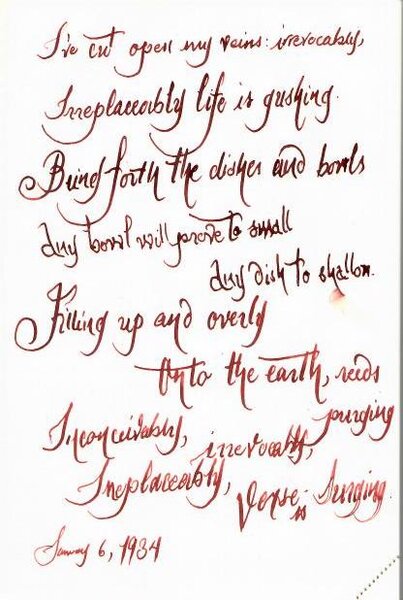 I've cut open my veins: irrevocably,
Irreplaceably life is gushing.
Bring forth the dishes and bowls
Any bowl will prove to small
Any dish to shallow.
Filling up and overly
Onto the earth, reeds
purging
Inconceivably, irrevocably,
Irreplaceably,
Verse is Surging.
January 6, 1934